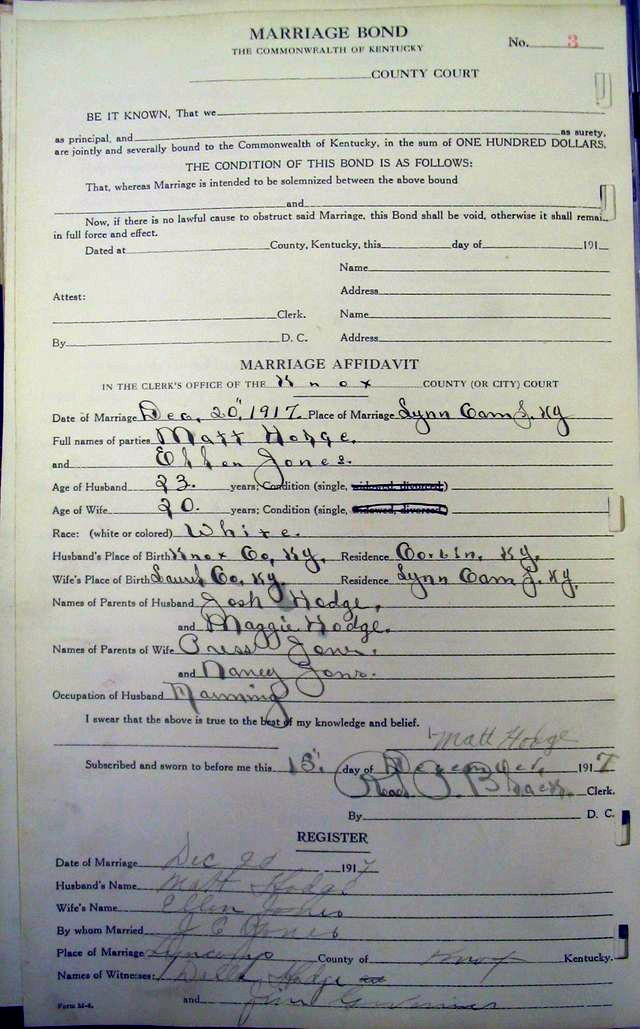 MARRIAGE BOND
THE COMMONWEALTH OF KENTUCKY
No. 3
COUNTY COURT
BE IT KNOWN, That we
as principal, and as surety,
are jointly and severally bound to the Commonwealth of Kentucky, in the sum of ONE HUNDRED DOLLARS.
THE CONDITION OF THIS BOND IS AS FOLLOWS:
That, whereas Marriage is intended to be solemnized between the above bound
and
Now, if there is no lawful cause to obstruct said Marriage, this Bond shall be void, otherwise it shall remai
in full force and effect.
Dated at County, Kentucky, this day of 191
Name
Attest: Address
Clerk. Name
By D. C. Address
MARRIAGE AFFIDAVIT
IN THE CLERK'S OFFICE OF THE Knox COUNTY (OR CITY) COURT
Date of Marriage Dec, 20", 1917. Place of Marriage Lynn Cam Ky
Full names of parties Matt Hodge.
and Ellen Jones.
Age of Husband 23. years; Condition (single, widowed, divorced)
Age of Wife 20. years; Condition (single, widowed, divorced)
Race: (white or colored) White.
Husband's Place of Birth Knox Co, Ky, Residence Corbin, Ky.
Wife's Place of Birth Laurel Co, Ky. Residence Lynn Cam Ky,
Names of Parents of Husband Josh Hodge,
and Maggie Hodge.
Names of Parents of Wife Press Jones.
and Nancy Jons.
Occupation of Husband
I swear that the above is true to the best of my knowledge and belief.
Matt Hodge
Subscribed and sworn to before me this 15" day of December, 1917
Read P. Black. Clerk.
By D. C.
REGISTER
Date of Marriage Dec 20 1917
Husband's Name Matt Hodge
Wife's Name Ellen Jones
By whom Married Jones
Place of Marriage County of Knox Kentucky.
Names of Witnesses: Hodge
and Jim
Form M-4.